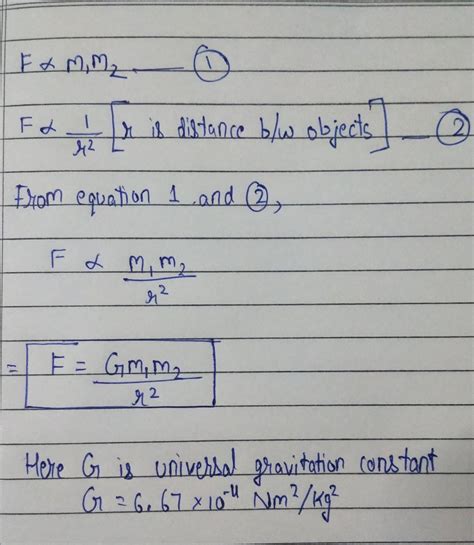 F ∝ m₁m₂ — ①
F ∝ 1/r² [r is distance b/w objects] — ②
From equation 1 and ②,
F ∝ m₁m₂/r²
= F = Gm₁m₂/r²
Here G is universal gravitation constant
G = 6.67 × 10⁻¹¹ Nm²/kg²